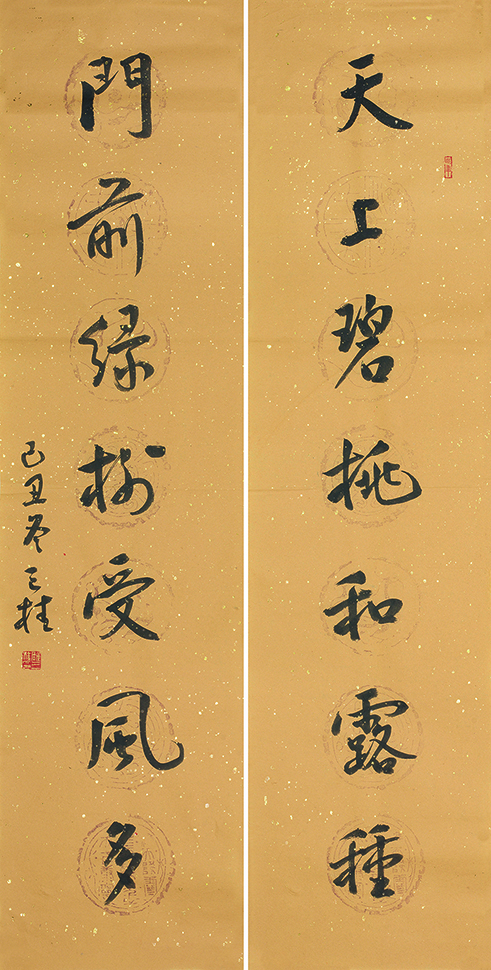 天上碧桃和露種
門前緑樹受風多
己丑冬三桂